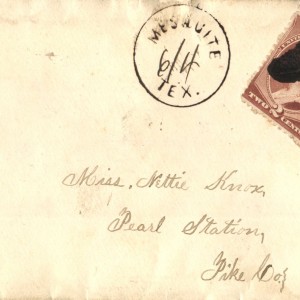 MESQUITE
6/4
TEX.
TWO 2 CEN
Miss. Nettie Knox,
Pearl Station,
Pike Co,